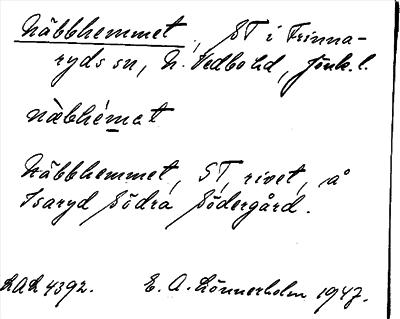 Näbbhemmet, ST i Frinna-
ryds sn, N. Vedbo hd, Jönk. l.
näbhémat
Näbbhemmet, ST, rivet, å
Isaryd Södra Södergård.
LAL 4392. E. A. Lönnerholm 1947.